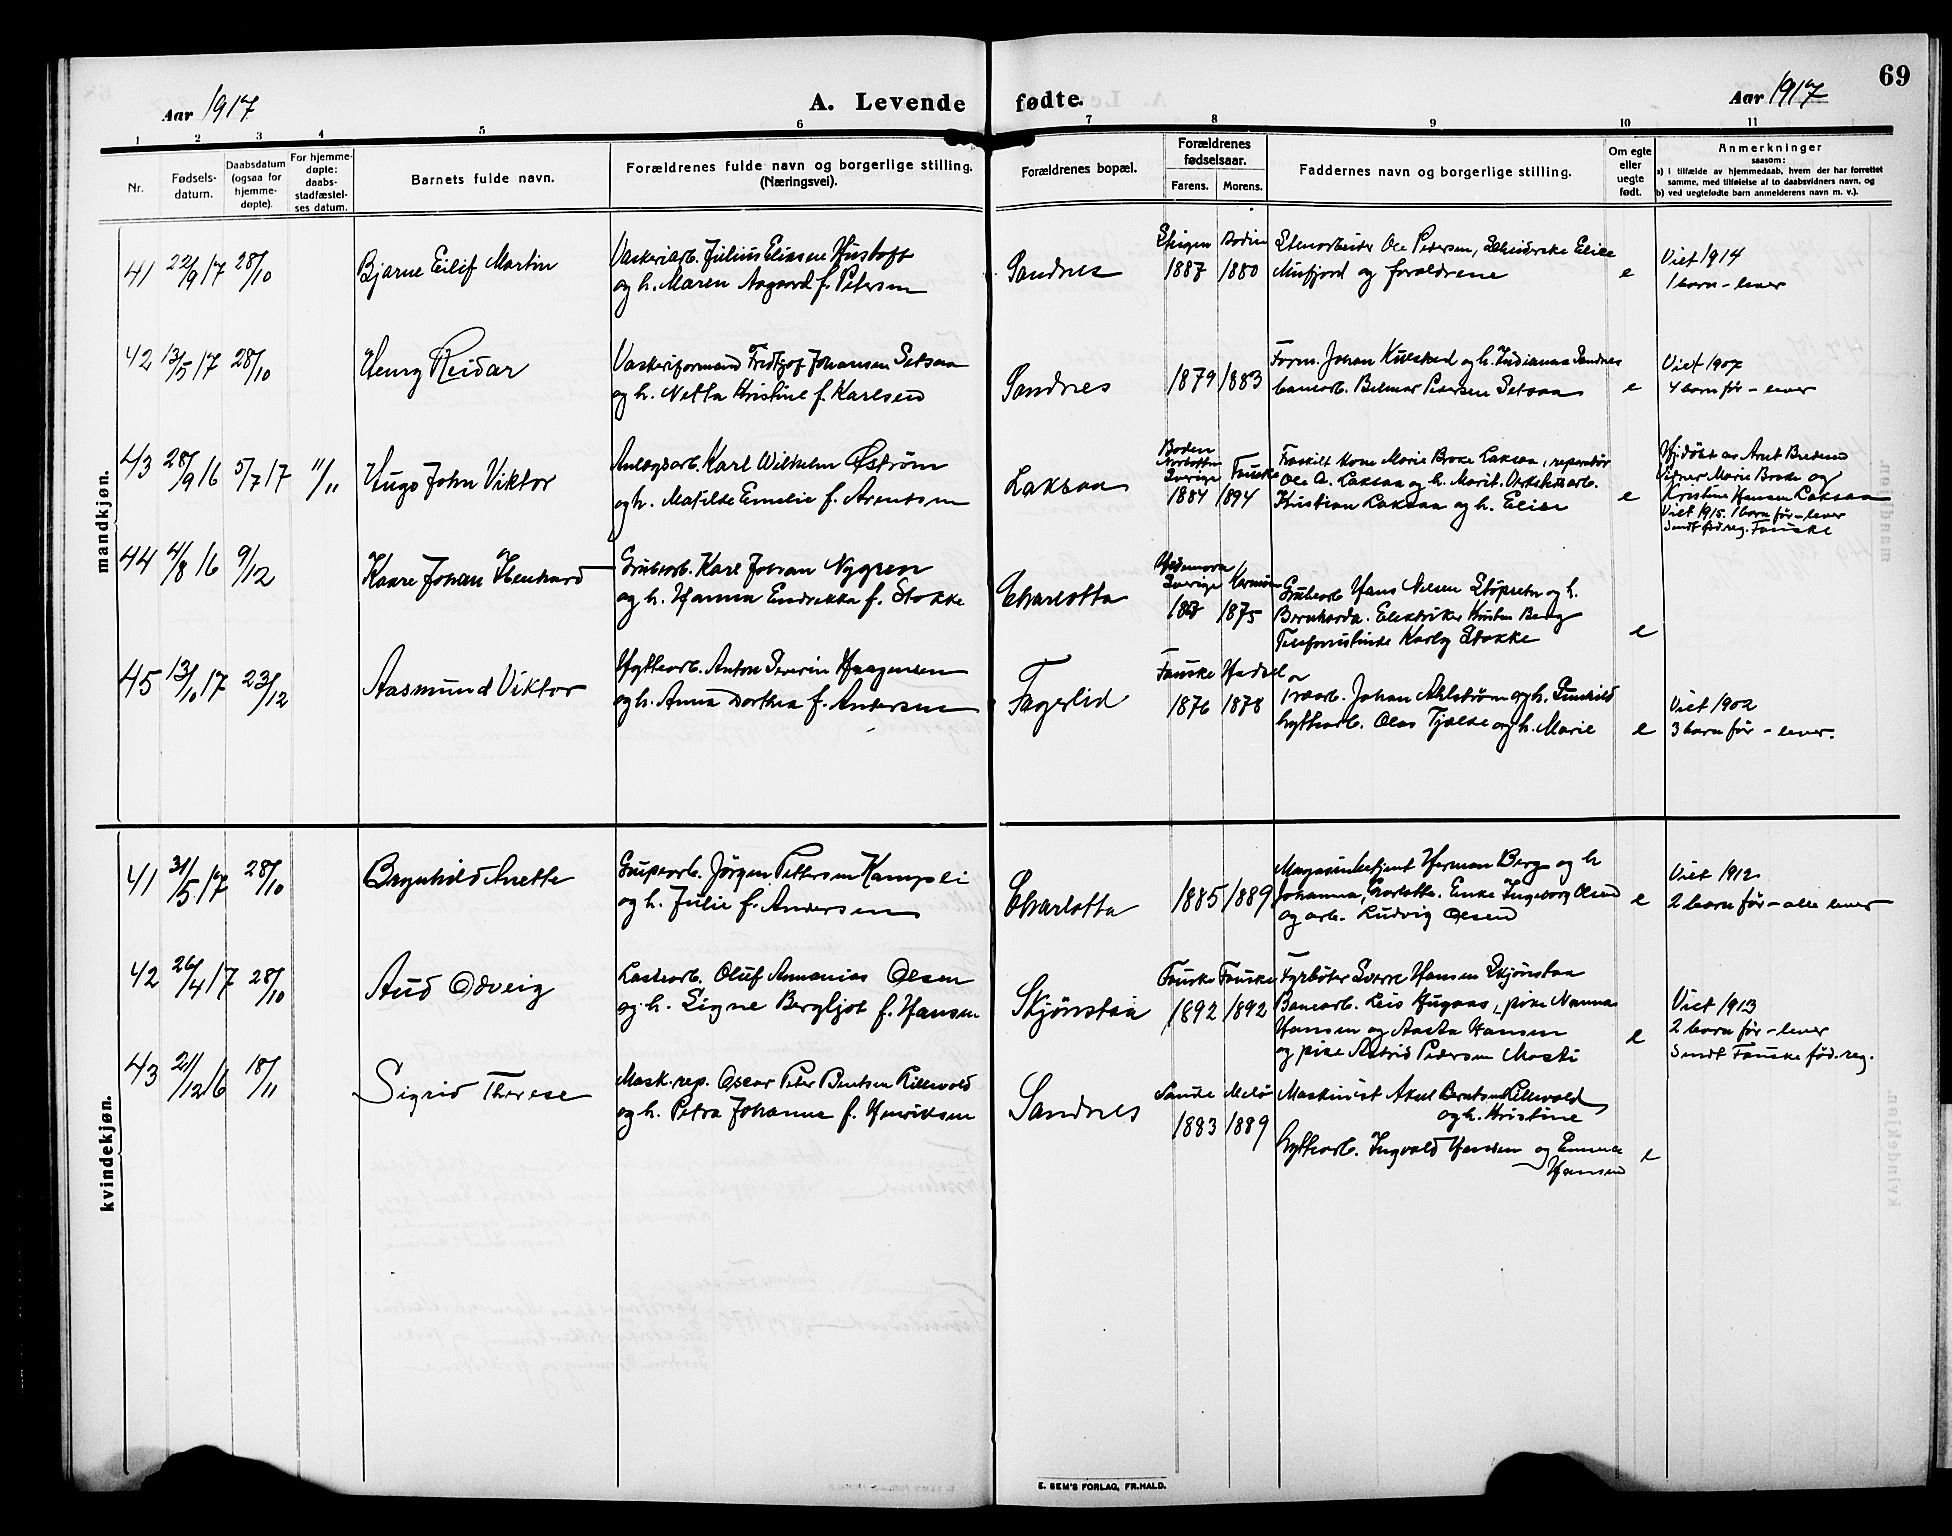 69
Aar 1917
A. Levende fødte.
Aar 1917
1 2 3 4 5 6 7 8 9 10 11
Nr.
Fødsels-
datum.
Daabsdatum
(ogsaa for
hjemme-
døpte).
For hjemme-
døpte:
daabs-
stadfæstel-
ses datum.
Barnets fulde navn.
Forældrenes fulde navn og borgerlige stilling.
(Næringsvei).
Forældrenes bopæl.
Forældrenes
fødselsaar.
Farens. Morens.
Faddernes navn og borgerlige stilling.
Om egte
eller
uegte
født.
Anmerkninger
saasom:
a) i tilfælde av hjemmedaab, hvem der har forrettet
samme, med tilføielse af to daabsvidners navn, og
b) ved uegtefødte barn anmelderens navn m. v.).
mandkjøn.
41 22/9 17 28/10
Bjarne Eilif Martin
Vaskeriarb. Julius Eliasen Hustoft
og h. Maren Aagaard f. Petersen
Sandnes
Bodin
1887 1880
Stenarbeider Ole Pedersen, Elise
Misfjord og forældrene
e
Viet 1914
1 barn – lever
42 13/5 17 28/10
Henry Reidar
Vaskeriformand Fredtjof Johansen Setsaa
og h. Netta Kristine f. Karlsen
Sandnes
1879 1883
Form. Johan og h. Indianna Sandnes
banearb. Pedersen Setsaa
e
Viet 1907
4 barn før – lever
43 28/9 16 5/7 17 11/11
Hugo John Viktor
Anlægsarb. Karl Wilhelm Østrøm
og h. Matilde Emelie f. Arentsen
Laksaa
Boden
Norbotten
Sverige Fauske
1884 1894
Fraskilt kone Marie Laksaa, reparatør
Ole A. Laksaa og h. Marit.
Kristian Laksaa og h. Elise
e
Hj.døbt av Arnt
Vidner Marie og
Kristine Hansen Laksaa
Viet 1915. 1 barn før – lever
Sendt fød.reg. Fauske
44 4/8 16 9/12
Kaare Johan
Grubearb. Karl Johan Nygren
og h. Hanna Endrikka f. Stokke
Charlotta
Hedemora
Sverige
1875
Grubearb Hans Nilsen og h.
Bernharda. Elektriker Berg
Telefonistinde Karly Stokke
e
45 13/10 17 23/12
Aasmund Viktor
Hyttearb. Anton Severin Haagensen
og h. Anna Dorthea f. Andersen
Fagerlid
Fauske Hadsel
1876 1878
Johan Ahlstrøm og h. Gunhild
hyttearb. og h. Marie
e
Viet 1902
3 barn før – lever.
kvindekjøn.
41 31/5 17 28/10
Brynhild Anette
Jørgen Pettersen Kampli
og h. Julie f. Andersen
Charlotta
1885 1889
Magasinbetjent Herman Berg og h
Johanna, Enke Ingeborg Olsen
og arb. Ludvig Olsen
e
Viet 1912
2 barn før – alle lever
42 26/4 17 28/10
Aud Odveig
Lastearb. Oluf Annanias Olsen
og h. Signe Bergljot f. Hansen
Skjønstaa
Fauske Fauske
1892 1892
Fyrbøter Sverre Hansen Skjønstaa
Banearb. pike Nanna
Hansen og Aasta Hansen
og pike Astrid Pedersen Mosti
e
Viet 1913
2 barn før – lever
Sendt Fauske fød.reg.
43 21/12 16 18/11
Sigrid Therese
Mask.rep. Oscar Peter Lillevold
og h. Petra Johanne f. Henriksen
Sandnes
Sande Melø
1883 1889
Maskinist Aksel Lillevold
og h. Kristine
hyttearb. Ingvald Hansen og Emma
Hansen
e
E. SEM'S FORLAG, FR.HALD.